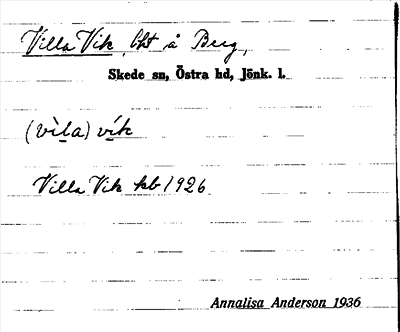 Villa Vik, lht å Berg,
Skede sn, Östra hd, Jönk. l.
(vìla) vík
Villa Vik kb 1926
Annalisa Anderson 1936